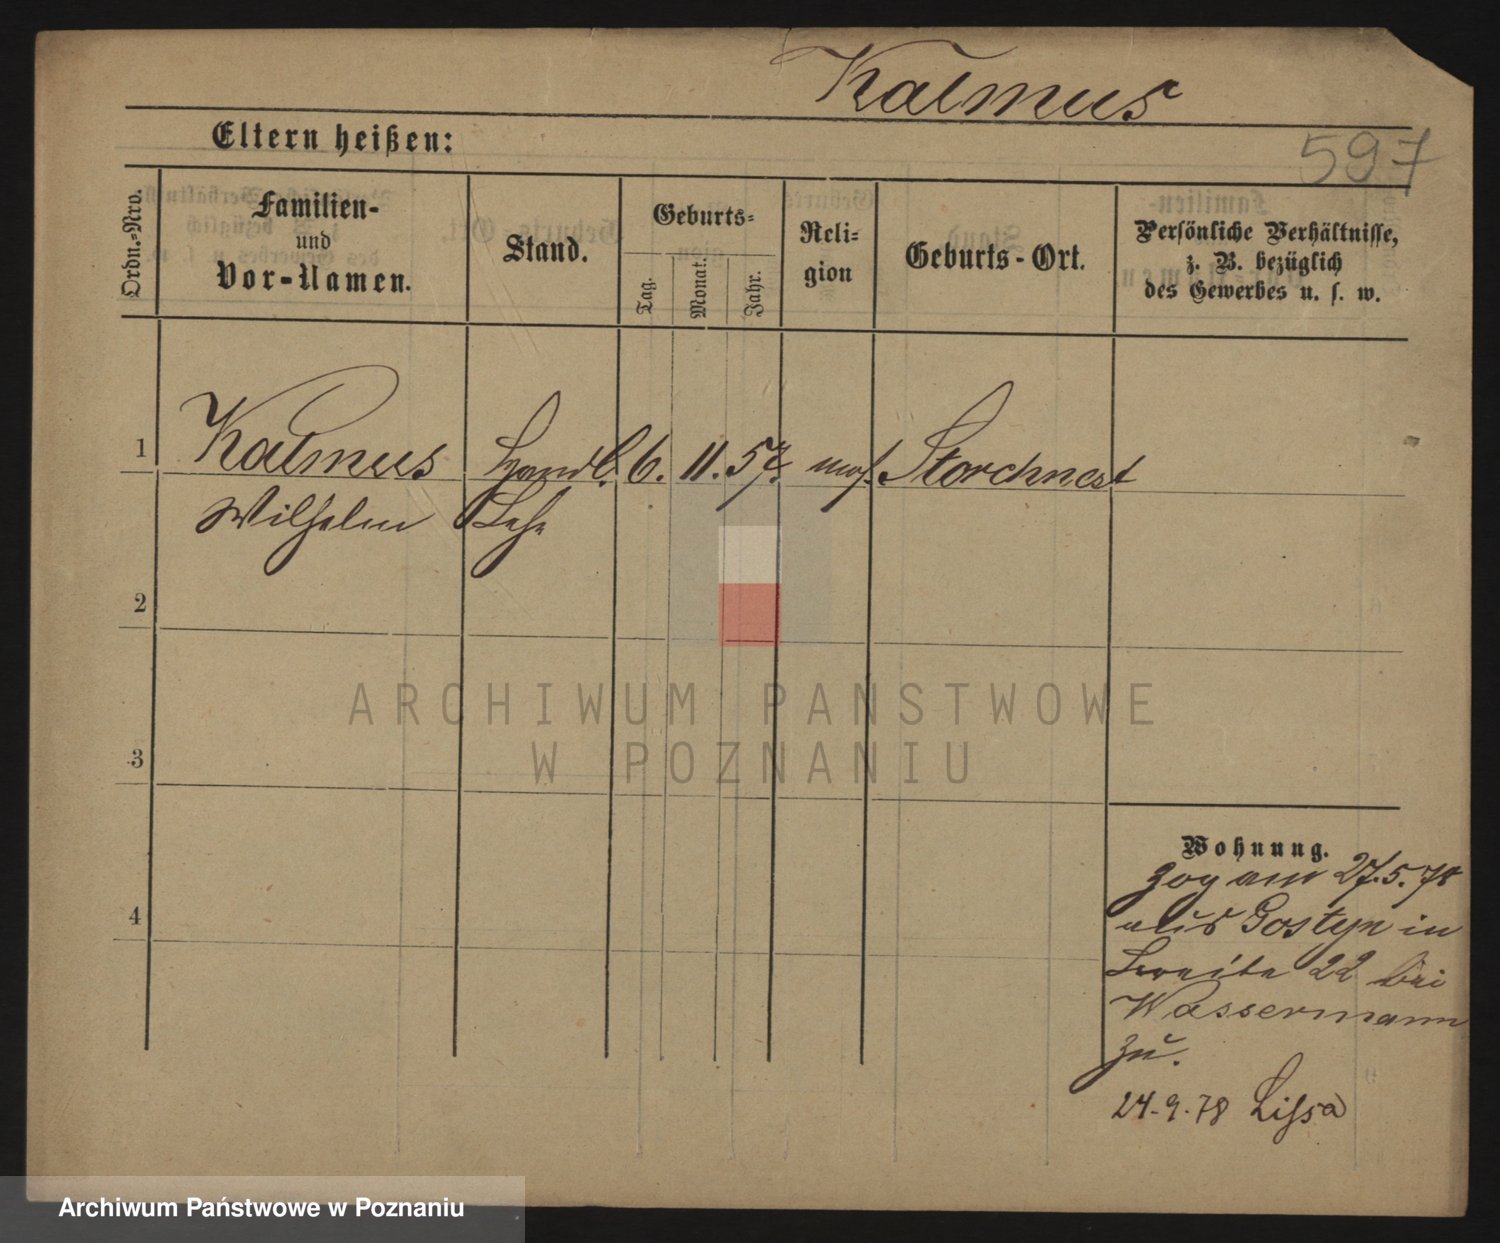 Kalmus
597
Eltern heißen:
Ordn.-Nro.
Familien-
und
Vor-Namen.
Stand.
Geburts-
Tag.
Monat.
Jahr.
Reli-
gion
Geburts-Ort.
Persönliche Verhältnisse,
z. B. bezüglich
des Gewerbes u. s. w.
1 Kalmus Handl. 6. 11. 57. mos. Storchnest
Wilhelm Lehr
2
3
4
ARCHIWUM PAŃSTWOWE
W POZNANIU
Wohnung.
zog am 27.5.78
aus Gostyn in
Breite 22 bei
Wassermann
zu.
24.9.78 Lissa
Archiwum Państwowe w Poznaniu